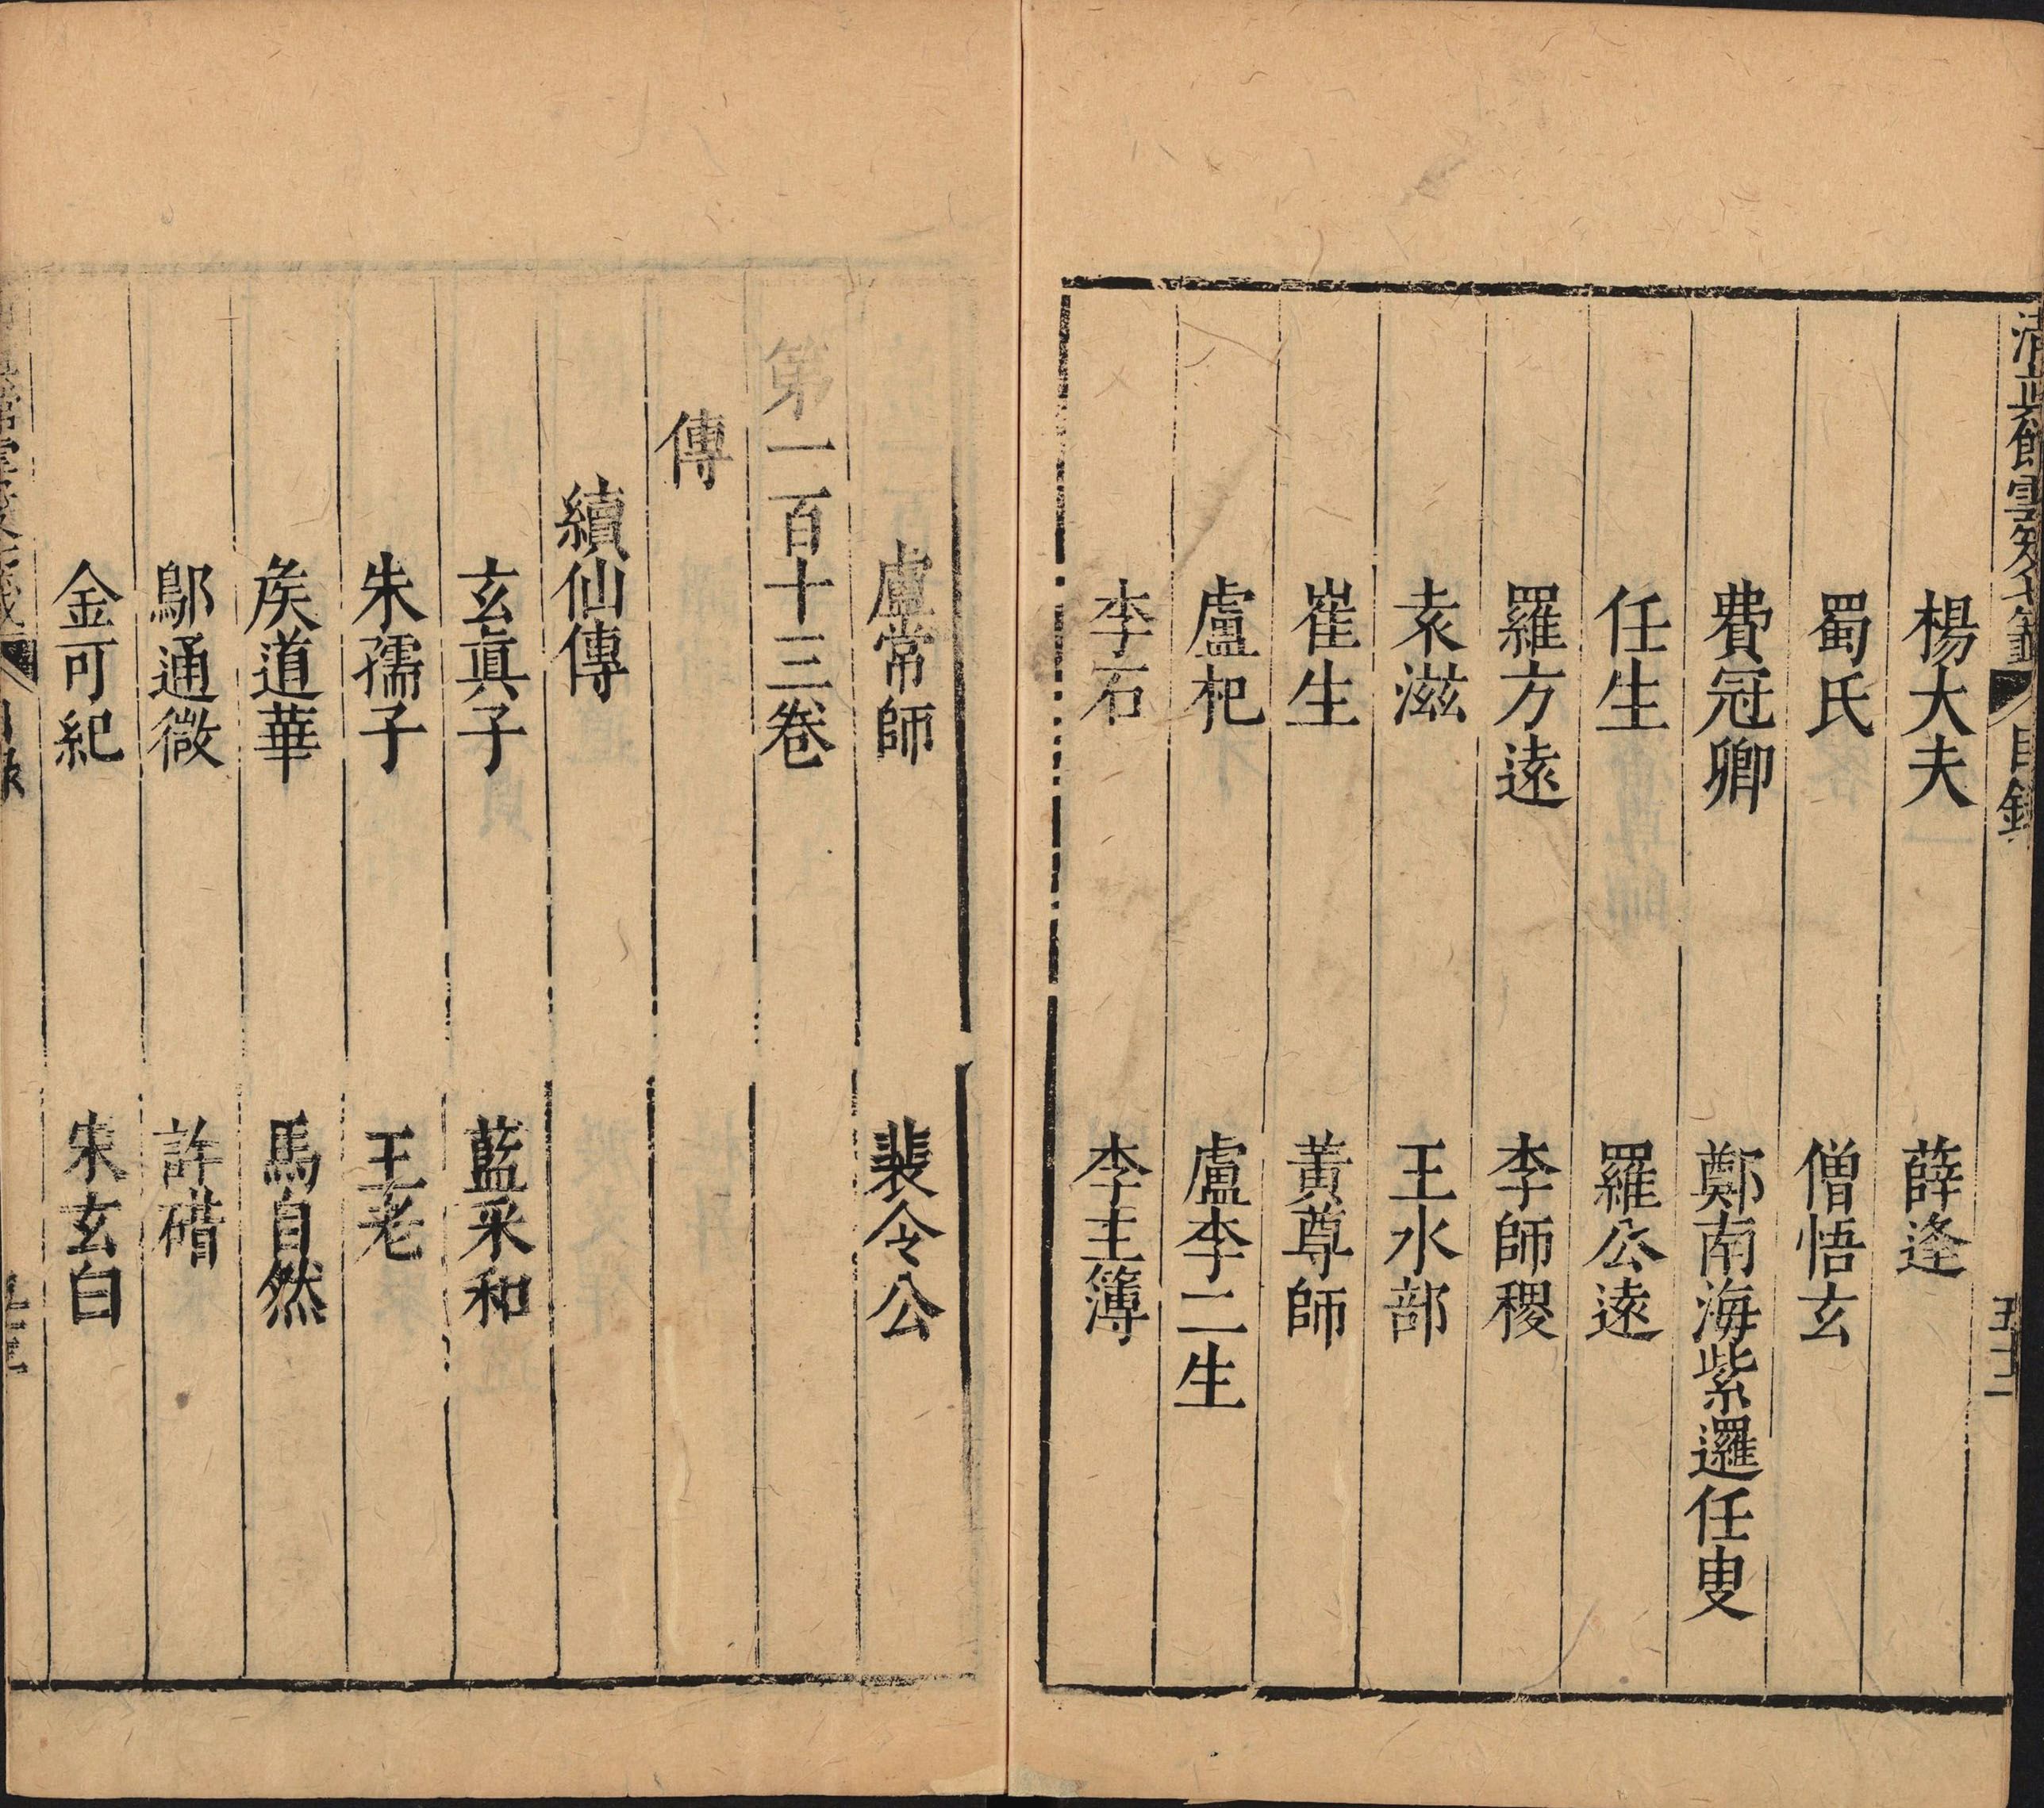 清眞館雲笈七籤 目錄 五十二
楊大夫 薛逢
蜀氏 僧悟玄
費冠卿 鄭南海紫邏任叟
任生 羅公遠
羅方遠 李師稷
袁滋 王水部
崔生 黃尊師
盧杞 盧李二生
李石 李主簿
盧常師 裴令公
第一百十三卷
傳
續仙傳
玄眞子 藍采和
朱孺子 王老
矦道華 馬自然
鄔通微 許碏
金可紀 宋玄白
目錄